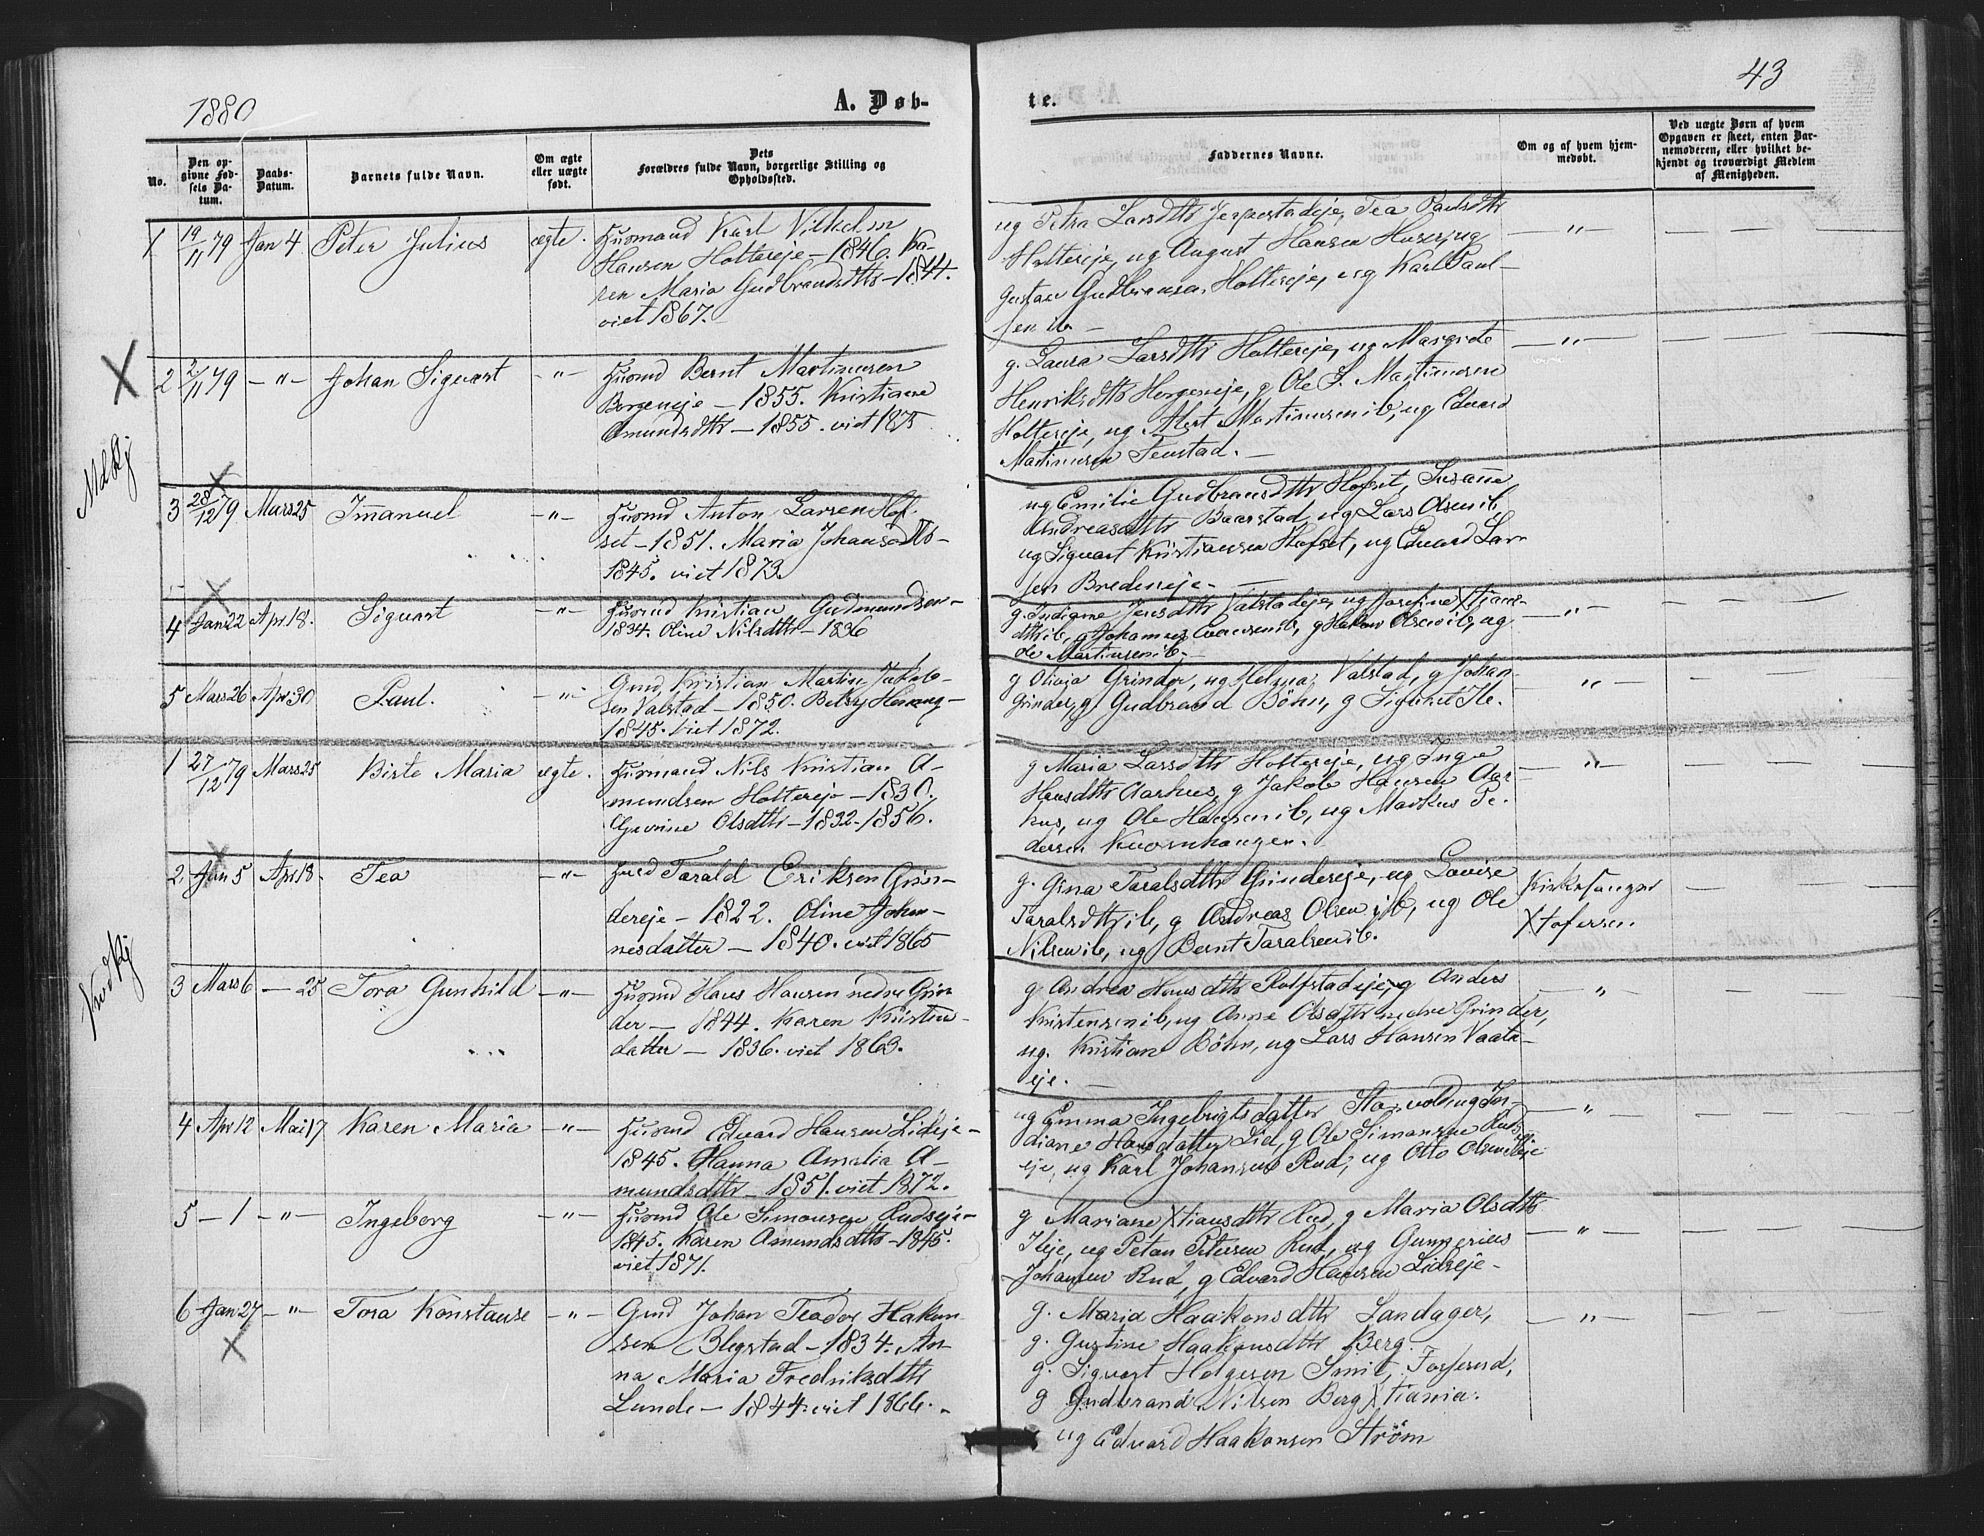 1880
A. Døb-
te.
43
No.
Den op-
givne Fød-
sels Da-
tum.
Daabs-
Datum.
Barnets fulde Navn.
Om ægte
eller uægte
født.
Dets
Forældres fulde Navn, borgerlige Stilling og
Opholdssted.
Faddernes Navne.
Om og af hvem hjem-
medøbt.
Ved uægte Børn af hvem
Opgaven er skeet, enten Bar-
nemoderen, eller hvilket be-
kjendt og troværdigt Medlem
af Menigheden.
1 19/11 79 Jan 4 Peter Julius ægte. Husmand Karl Vilhelm
Hansen Holtereje - 1846. Ka-
ren Maria Gudbrandsdtr - 1844.
viet 1867.
ug Petra Larsdtr Jerpestadeje, Tea Paulsdtr
Holtereje, ug August Hansen
Gustav Gudbransen Holtereje, ug Karl Paul-
sen ib -
2 2/11 79 - " - Johan Sigvart - " - Husmd Bernt Martinusen
Borgeneje - 1855. Kristiane
Amundsdtr - 1855. viet 1875
g. Laura Larsdtr Holtereje, ug Margrete
Henriksdtr Horgereje, g Ole L. Martinusen
Holtereje, ug Albert Martinusen ib, ug Edvard
Martinusen Fenstad. -
Mdlkj
3 28/12 79 Mars 25 Immanuel - " - Husmd Anton Larsen Hof-
set - 1851. Maria Johansdtr -
1845. viet 1873.
ug Emilie Gudbransdtr Hofset, Susanne
Andreasdtr Baarstad, ug Lars Olsen ib,
ug Sigvart Kristiansen Hofset, ug Edvard Lar-
sen Bredeseje -
4 Jan 22 Apr 18. Sigvart - " - Husmd Kristian Gudmundsen -
1834. Oline Nilsdtr - 1836
g. Indiane Jensdtr Valstadeje, ug Josefine Xtians-
dtr ib, g Johannes Evensen ib, g Hakon Olsen ib, ug
Ole Martinsen ib. -
5 Mars 26 Apr 30 Paul. - " - Gmd, Kristian Martin Jakob-
sen Valstad - 1850. Betsy Herseng -
1845. viet 1872.
g Olivia Grinder, ug Helma Valstad, g Johan
Grinder, g Gudbrand Böhn, g Sigvart Ile.
1 27/12 79 Mars 25 Birte Maria ægte. Husmand Nils Kristian A-
mundsen Holtereje - 1830.
Gurine Olsdtr - 1832 - 1856.
g Maria Larsdtr Holtereje, ug Inge
Hansdtr Aarhus, g Jakob Hansen Aar-
hus, ug Ole Hansen ib, ug Markus Pe-
dersen Kvernhaugen.
2 Jan 5 Apr 18. Tea - " - Husd Tarald Eriksen Grin-
dereje - 1822. Oline Johan-
nesdatter - 1840. viet 1865
g. Gina Taralsdtr Grindereje, ug Lovise
Taralsdtr ib, g Andreas Olsen ib, ug Ole
Nilsen ib, ug Bernt Taralsen ib.
Kirkesanger
Xtofersen.
Nordkj
3 Mars 6 - 25 Tora Gunhild - " - Husmd Hans Hansen nedre Grin-
der - 1844. Karen Kristen-
datter - 1836. viet 1863.
g Andrea Hansdtr Rolfstadeje, g Anders
Kristensen ib, ug Anne Olsdtr nedre Grinder,
ug. Kristian Böhn, ug Lars Hansen Vaata-
eje. -
4 Apr 12 Mai 17 Karen Maria - " - Husmd Edvard Hansen Lideje -
1845. Hanna Amalia A-
mundsdtr - 1851. viet 1872.
ug Emma Ingebrigtsdatter Storvold, ug In-
diane Hansdatter Lid, g Ole Simonsen Ruds-
eje, ug Karl Johansen Rud, ug Otto Olsen Lideje
5 - 1 - " - Ingeborg - " - Husmd Ole Simonsen Rudseje -
1845. Karen Amundsdtr - 1845.
viet 1871.
g Mariane Xtiansdtr Rud, g Maria Olsdtr
Ileje, ug Petan Petersen Rud, ug Gunnerius
Johansen Rud, g Edvard Hansen Lidseje -
6 Jan 27 - " - Tora Konstanse - " - Gmd Johan Teodor Hakon-
sen Blegstad - 1834. An-
na Maria Fredriksdtr
Lunde - 1844. viet 1866. -
g. Maria Haakonsdtr Sandager,
g. Gustine Haakonsdtr Berg.
g. Sigvart Holgersen Smit,
g Gudbrand Nilsen Berg Xtiania.
ug Edvard Haakonsen Strøm